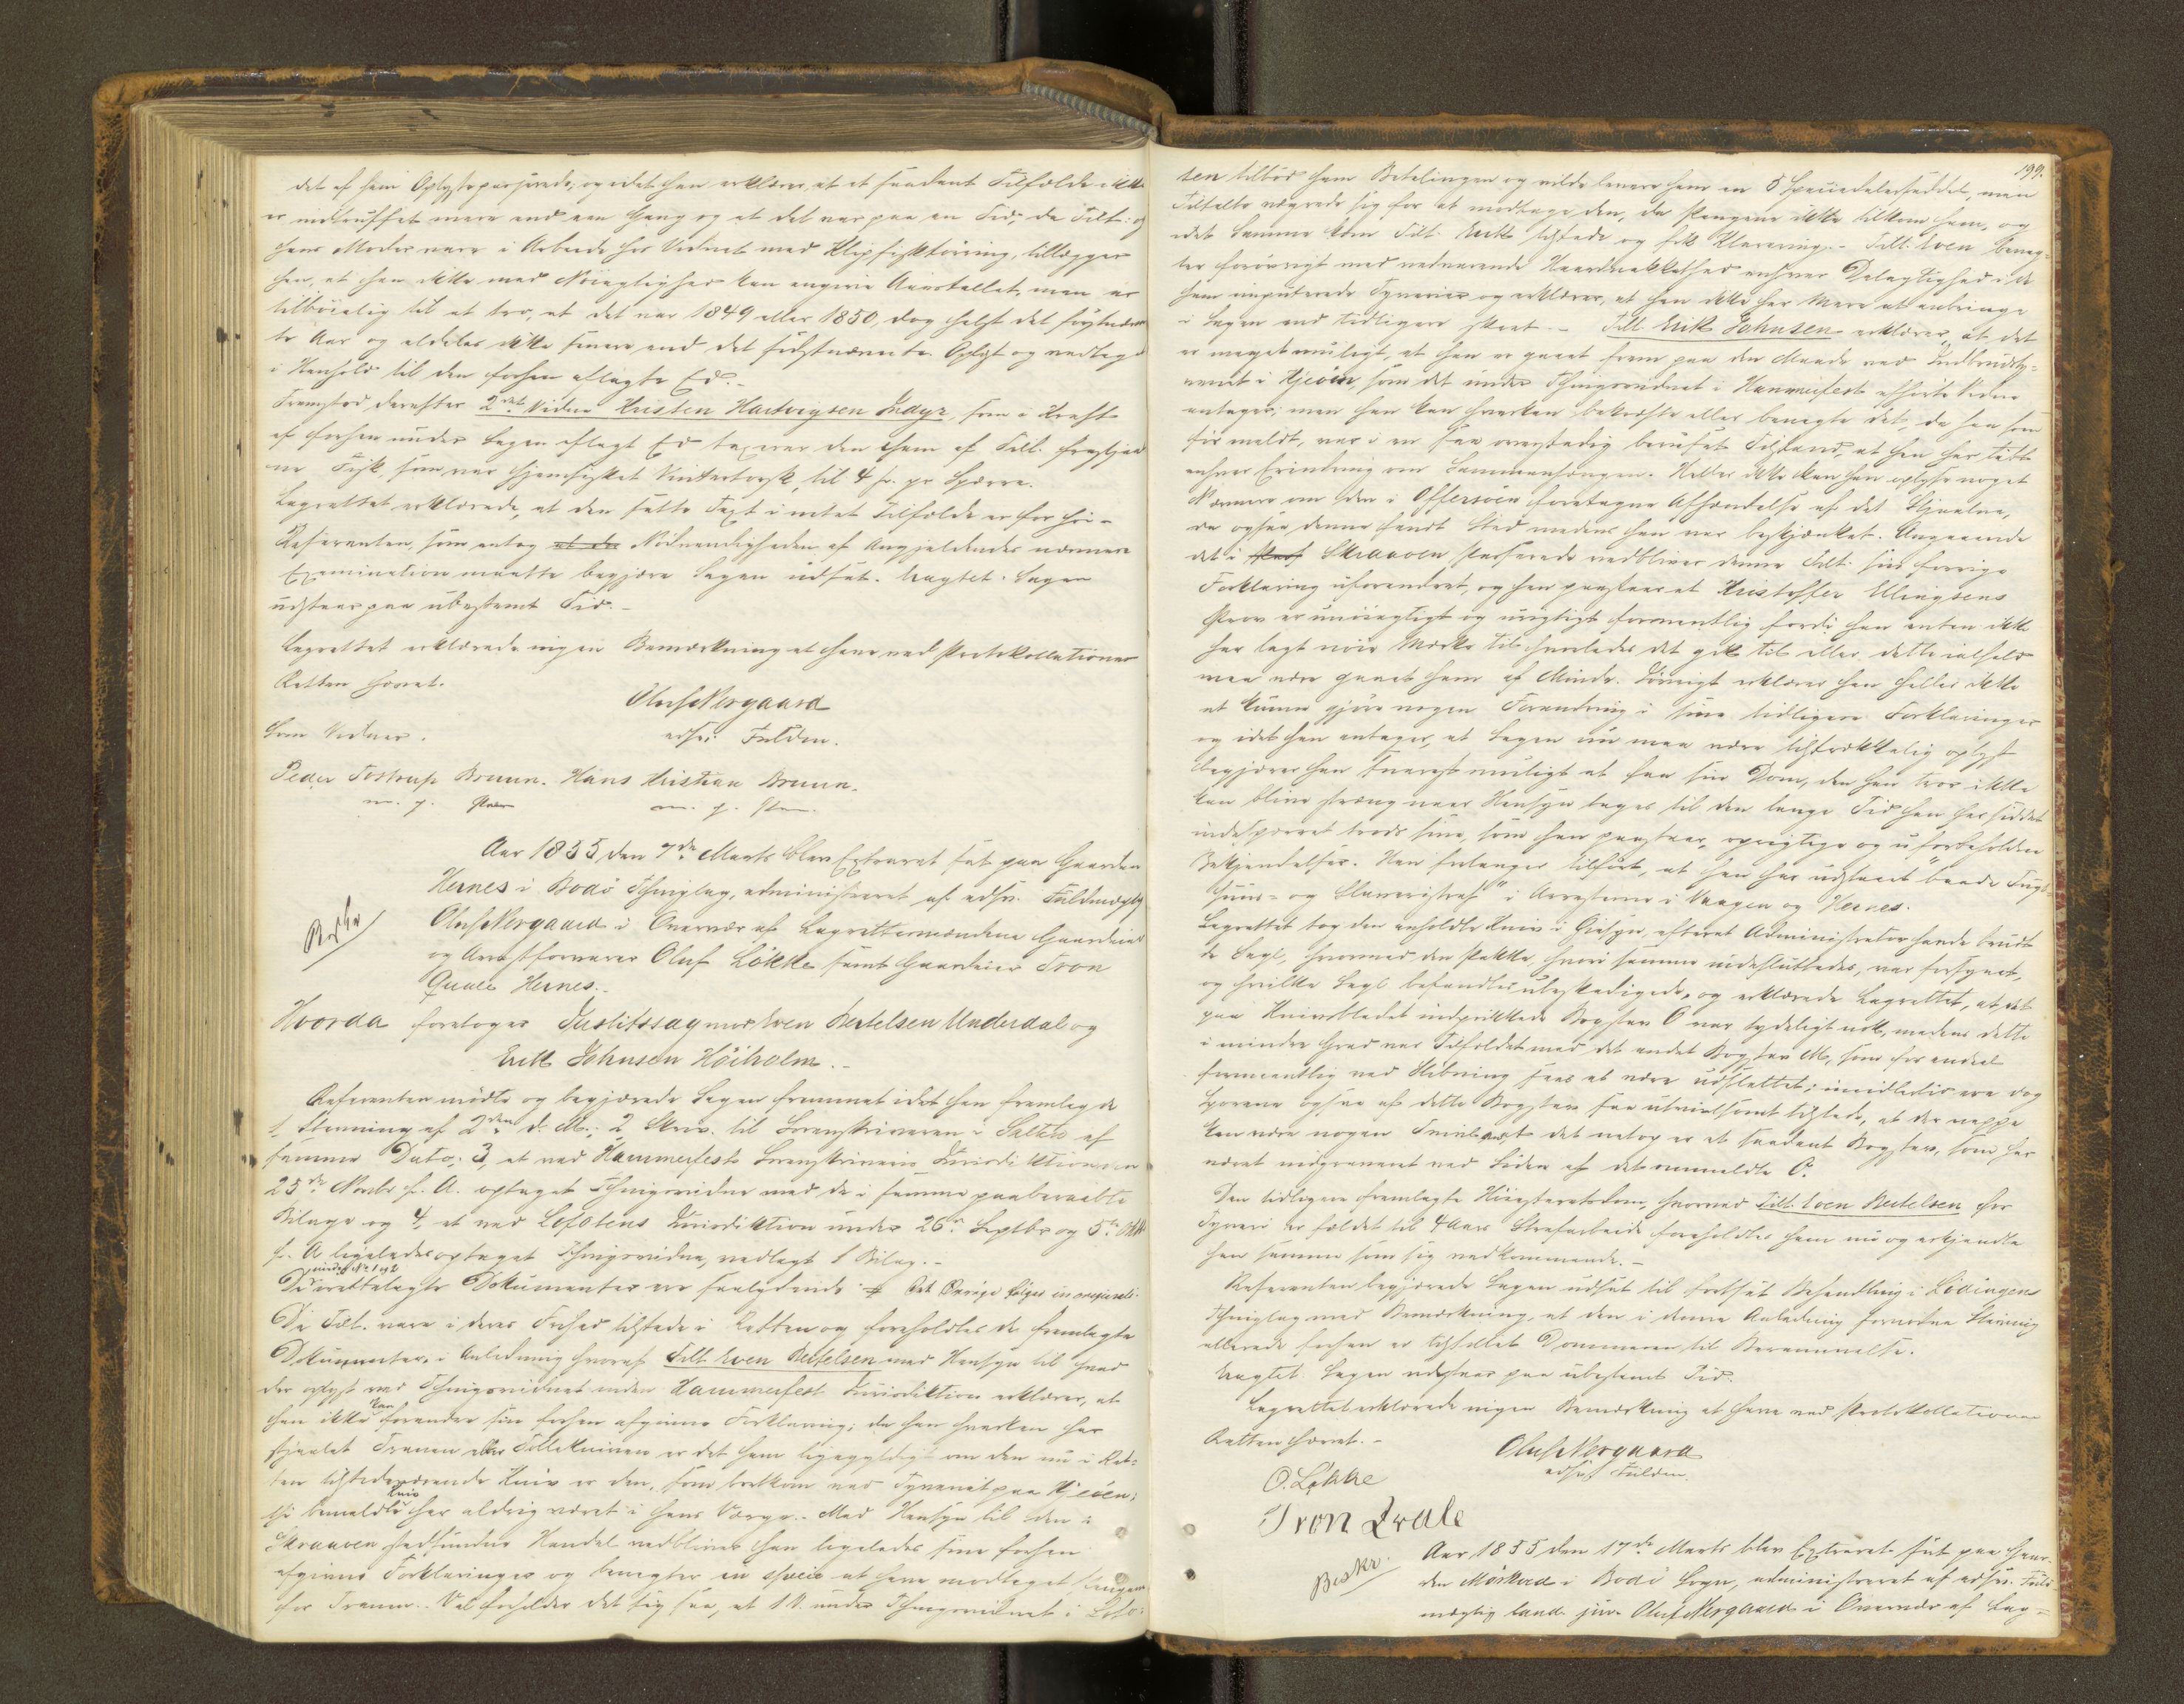 det af ham Oplyste passerede, og idet han erklærer, at et saadant Tilfælde ikke
er indtruffet mere end een Gang og at det var paa en Tid, da Tilt. og
hans Moder vare i Arbeide hos Vidnet med Klipfisktörring, tillægger
han, at han ikke med Nöiagtighed kan angive Aarstallet, men er
tilböielig til at tro, at det var 1849 eller 1850, dog helst det förstnævn
te Aar og aldeles ikke senere end det sidstnævnte. Oplæst og vedtaget
i Henhold til den forhen aflagte Ed.-
Fremstod derefter 2det Vidne Kristen Hartvigsen Indyr, som i Kraft
af forhen under Sagen aflagt Ed taxerer den ham af Tilt. frastjaal
ne Fisk, som var hjemfisket Vintertorsk, til 4 s. pr Spærre.
Lagrettet erklærede, at den satte Taxt i intet Tilfælde er for höi-
Referenten, som antog at der Nödvendigheden af Angjældendes nærmere
Examination maatte begjære Sagen udsat. Eragtet. Sagen
udstaar paa ubestemt Tid.-
Lagrettet erklærede ingen Bemærkning at have ved Protokollationen
Retten hævet.
Oluf Norgaard
edsv. Fuldm.
Som Vidner.
Peder Tostrup Bruun. Hans Kristian Bruun.
m. f. Pen m. f. Pen.
Aar 1855 den 7de Marts blev Extraret sat paa Gaarden
Hernes i Bodö Thinglag, administreret af edsv. Fuldmægtig
Oluf Norgaard i Overvær af Lagrettesmændene Gaardeier
og Arrestforvarer Oluf Lökke samt Gaardeier Tron
Qvale Hernes.-
Beskr
Hvorda foretoges Justitssag mod Even Bertelsen Underdal og
Erik Johnsen Höiholm.-
Referenten mödte og begjærede Sagen fremmet idet han fremlagde
1, Stævning af 2den d. M.; 2 Skriv. til Sorenskriveren i Salten af
samme Dato; 3, et ved Hammerfests Sorenskriveris Jurisdiktion den
25de Novbr f. A. optaget Thingsvidne med de i samme paaberaabte
Bilage og 4, et ved Lofotens Jurisdiktion under 26de Septbr og 5te Oktbr
f. A. ligeledes optaget Thingsvidne, vedlagt 1 Bilag.-
De under No 1 og 2 irettelagte Dokumenter ere saalydende # Det Övrige fölger in originali.
De Tilt. vare i deres Frihed tilstede i Retten og foreholdtes de fremlagte
Dokumenter, i Anledning hvoraf Tilt. Even Bertelsen med Hensyn til hvad
der oplyst ved Thingsvidnet inden Hammerfest Jurisdiktion erklærer, at
han ikke kan forandre sin forhen afgivne Forklaring; da han hverken har
stjaalet Tranen eller Tollekniven er det ham ligegyldigt om den nu i Ret-
ten tilstedeværende Kniv er den, som bortkom ved Tyveriet paa Kjeöen;
thi bemeldte Kniv har aldrig været i hans Værge.- Med Hensyn til den i
Skraaven stedfundne Handel vedbliver han ligeledes sine forhen
afgivne Forklaringer og benegter in specie at have modtaget Penge
for Tranen.- Vel forholder det sig saa, at 1 V. under Thingsvidnet i Lofo-
199.
ten tilböd ham Betalingen og vilde levere ham en 5 Speciedalerseddel, men
Tiltalte vægrede sig for at modtage den, da Pengene ikke tilkom ham, og
idet samme kom Tilt. Erik tilstede og fik Klarering.- Tilt. Even beneg-
ter forövrigt med vedvarende Haardnakkethed enhver Delagtighed i de
ham imputerede Tyverier og erklærer, at han ikke har Mere at anbringe
i Sagen end tidligere skeet.- Tilt. Erik Johnsen erklærer, at det
er meget muligt, at han er gaaet frem paa den Maade ved Indbrudsty-
veriet i Kjeöen, som det under Thingsvidnet i Hammerfest afhörte Vidne
antager; men han kan hverken bekræfte eller benegte det, da han som
för meldt, var i en saa overstadig beruset Tilstand, at han har tabt
enhver Erindring om Sammenhængen. Heller ikke kan han oplyse noget
Nærmere om den i Offersöen foretagne Afhændelse af det Stjaalne,
da ogsaa denne fandt Sted medens han var beskjænket. Angaaende
det i Skraaven Passerede vedbliver denne Tilt. sin forrige
Forklaring uforandret, og han paastaar at Kristoffer Ellingsens
Prov er unöiagtigt og urigtigt formentlig fordi han enten ikke
har lagt nöie Mærke til hvorledes det gik til eller dette ialfald
maa være gaaet ham af Minde. Iövrigt erklærer han heller ikke
at kunne gjöre nogen Forandring i sine tidligere Forklaringer
og idet han antager, at Sagen nu maa være tilstrækkelig oplyst
begjærer han snarest muligt at faa sin Dom, den han tror ikke
kan blive streng naar Hensyn tages til den lange Tid han har siddet
indespærret trods sine, som han paastaar, oprigtige og uforbeholdne
Bekjendelser. Han forlanger tilfört, at han har udstaaet "baade Tugt-
huus- og Slaveristraf" i Arresterne i Vaagen og Hernes.
Lagrettet tog den anholdte Kniv i Öiesyn, efterat Administrator havde brudt
de Segl, hvormed den Pakke, hvori samme indesluttedes, var forsynet,
og hvilke Segl befandtes ubeskadigede, og erklærede Lagrettet, at det
paa Knivsbladet indprikkede Bogstav O var tydeligt nok, medens dette
i mindre Grad var Tilfældet med det andet Bogstav M, som for endeel
formentlig ved Slibning saaes at være udslettet; imidlertid ere dog
Sporene ogsaa af dette Bogstav saa utvivlsomt tilstede, at der neppe
kan være nogen Tvivl om at det netop er et saadant Bogstav, som har
været indgraveret ved Siden af det ommeldte O.
Den tidligere fremlagte Höiesteretsdom, hvorved Tilt. Even Bertelsen for
Tyveri er fældet til 4 Aars Strafarbeide foreholdtes ham nu og erkjendte
han samme som sig vedkommende.-
Referenten begjærede Sagen udsat til fortsat Behandling i Lödingens
Thinglag med Bemærkning, at den i denne Anledning fornödne Stævning
allerede forhen er tilstillet Dommeren til Berammelse.
Eragtet Sagen udstaar paa ubestemt Tid.
Lagrettet erklærede ingen Bemærkning at have ved Protokollationen
Retten hævet.-
Oluf Norgaard
edsv. Fuldm.
O. Løkke
Tron Qvale
Beskr.
Aar 1855 den 17de Marts blev Extraret sat paa Gaar-
den Mörkved i Bodö Sogn, administreret af edsv. Fuld
mægtig cand. jur. Oluf Norgaard i Overvær af Lag-